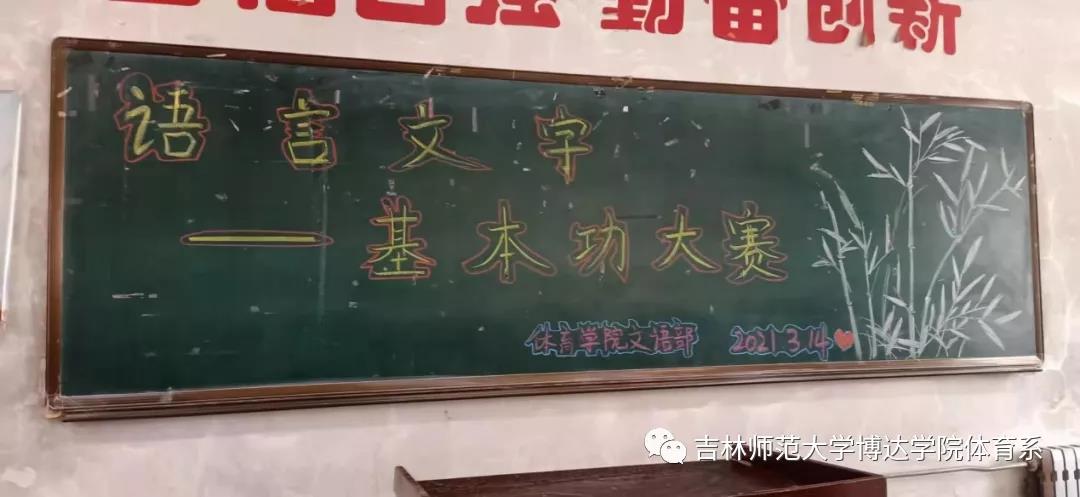 自强 勤奋创新
语言文字
——基本功大赛
体育学院文语部 2021 3 14
吉林师范大学博达学院体育系